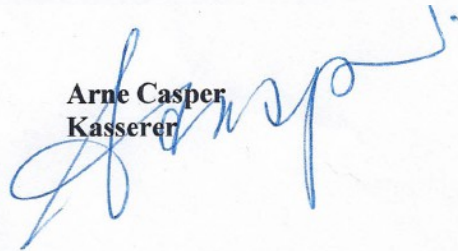 Arne Casper
Kasserer